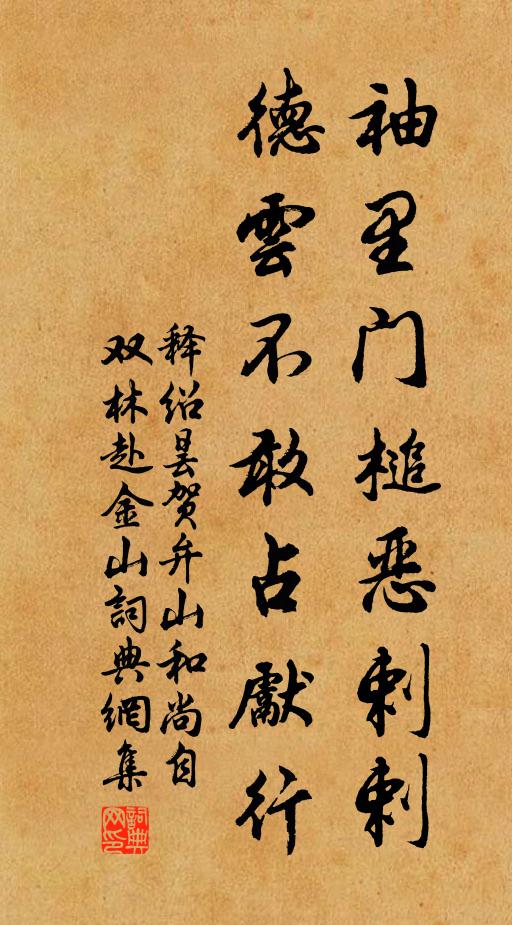 袖里门槌恶刺刺
德雲不敢占獻行
释绍昙贺弁山和尚自
双林赴金山詞典網集
詞典网印